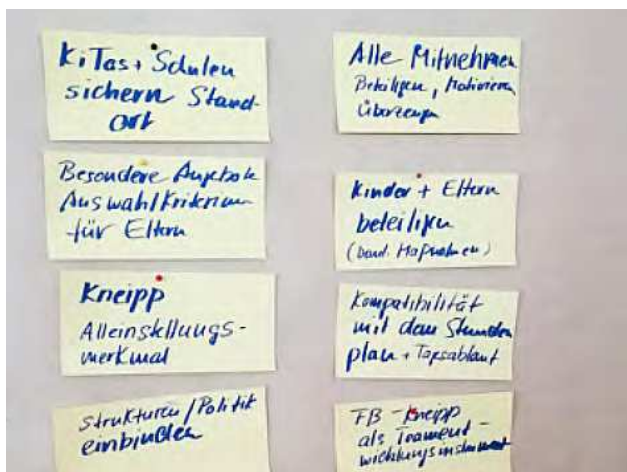 KiTas + Schulen
sichern Stand-
ort
Besondere Angebote
Auswahlkriterium
für Eltern
Kneipp
Alleinstellungs-
merkmal
Strukturen/Politik
einbinden
Alle Mitnehmen
Beteiligen, Motivieren
überzeugen
Kinder + Eltern
beteiligen
(Maßnahmen)
Kompatibilität
mit dem Stunden
plan + Tagesablauf
FB-Kneipp
als Teament-
wicklungsinstrument